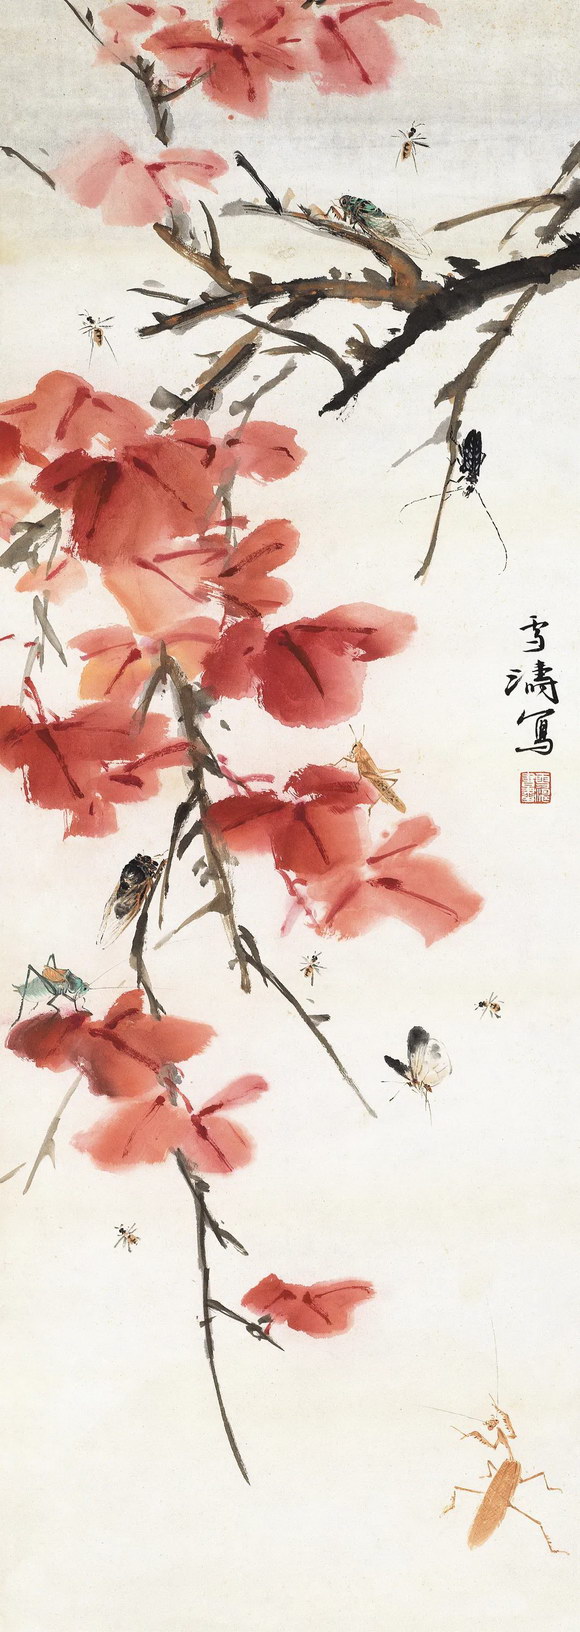 雪濤寫